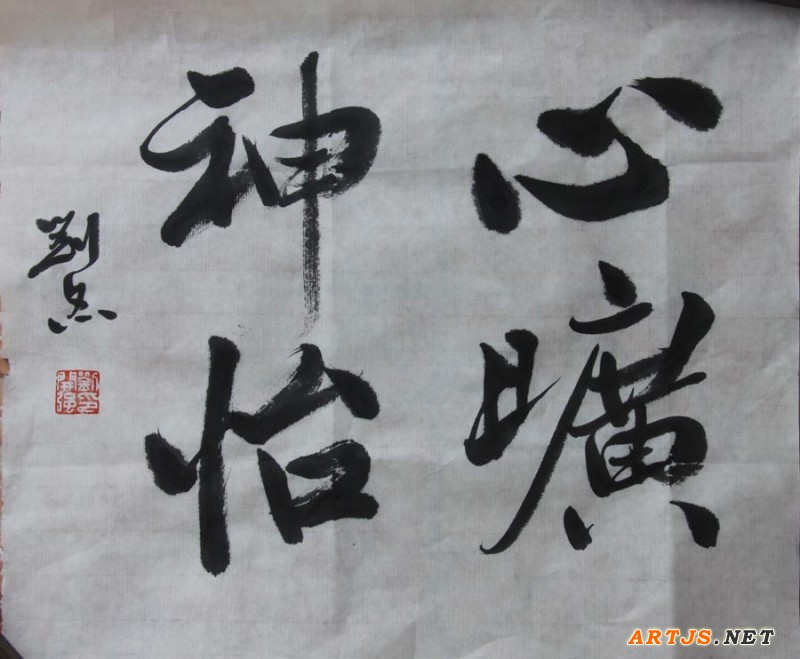 心曠
神怡
劉
ARTJS.NET